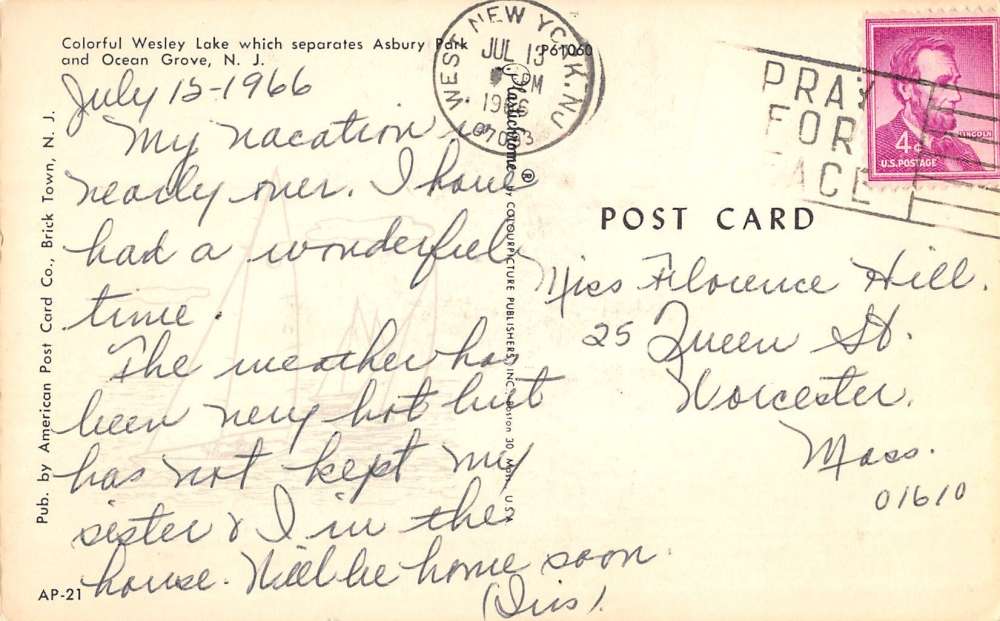 Colorful Wesley Lake which separates Asbury Park
and Ocean Grove, N. J.
July 13-1966
My vacation is
nearly over. I have
had a wonderful
time.
The weather has
been very hot but
has not kept my
sister & I in the
house. Will be home soon
(Iris).
AP-21
Pub. by American Post Card Co., Brick Town, N. J.
P61060
Plastichrome ® BY COLOURPICTURE PUBLISHERS, INC., Boston 30, Mass. USA
WEST NEW YORK. NJ
JUL 13
PM
1966
07093
PRAY
FOR
PEACE
LINCOLN
4¢
U.S. POSTAGE
POST CARD
Miss Florence Hill.
25 Queen St.
Worcester.
Mass.
01610